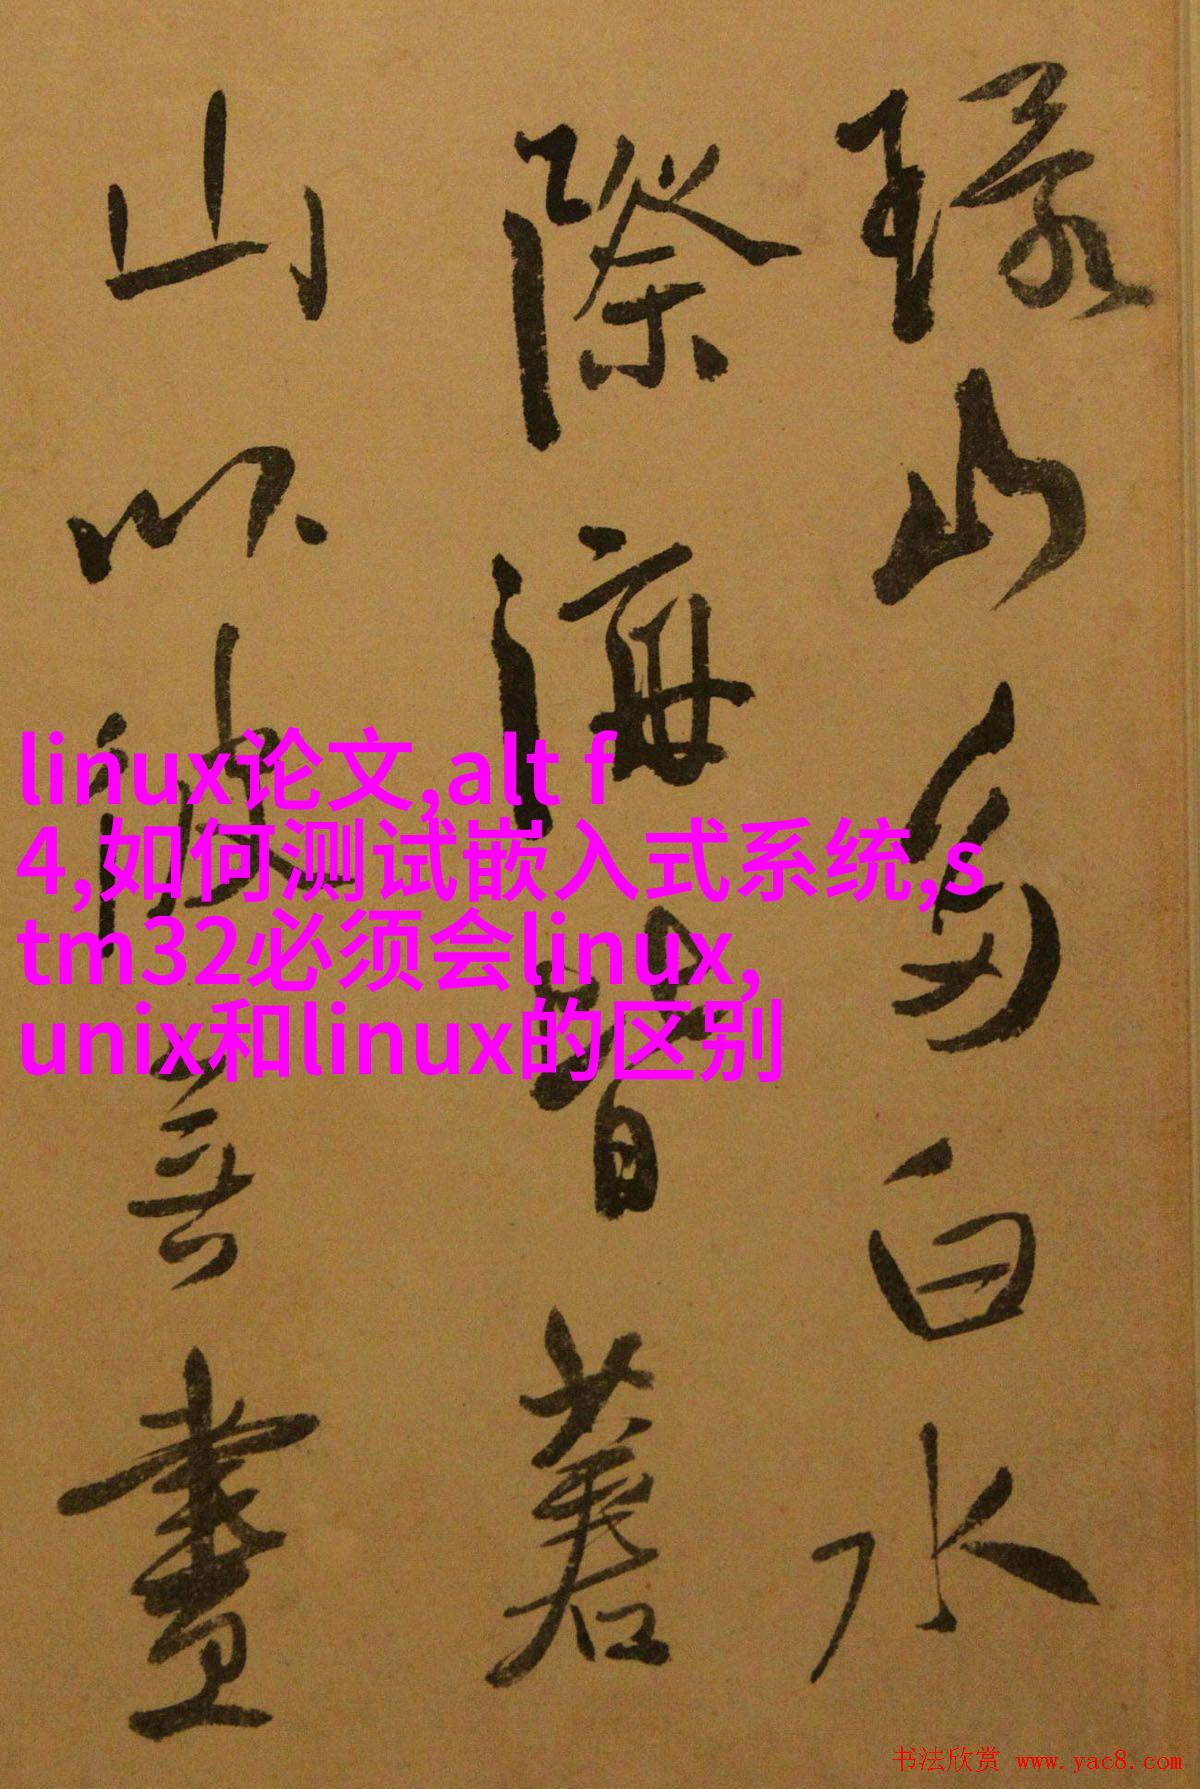 環山多白水
際海皆蒼
山以彼無盡
linux论文,alt f
4,如何测试嵌入式系统,s
tm32必须会linux,
unix和linux的区别
书法欣赏 www.yac8.com